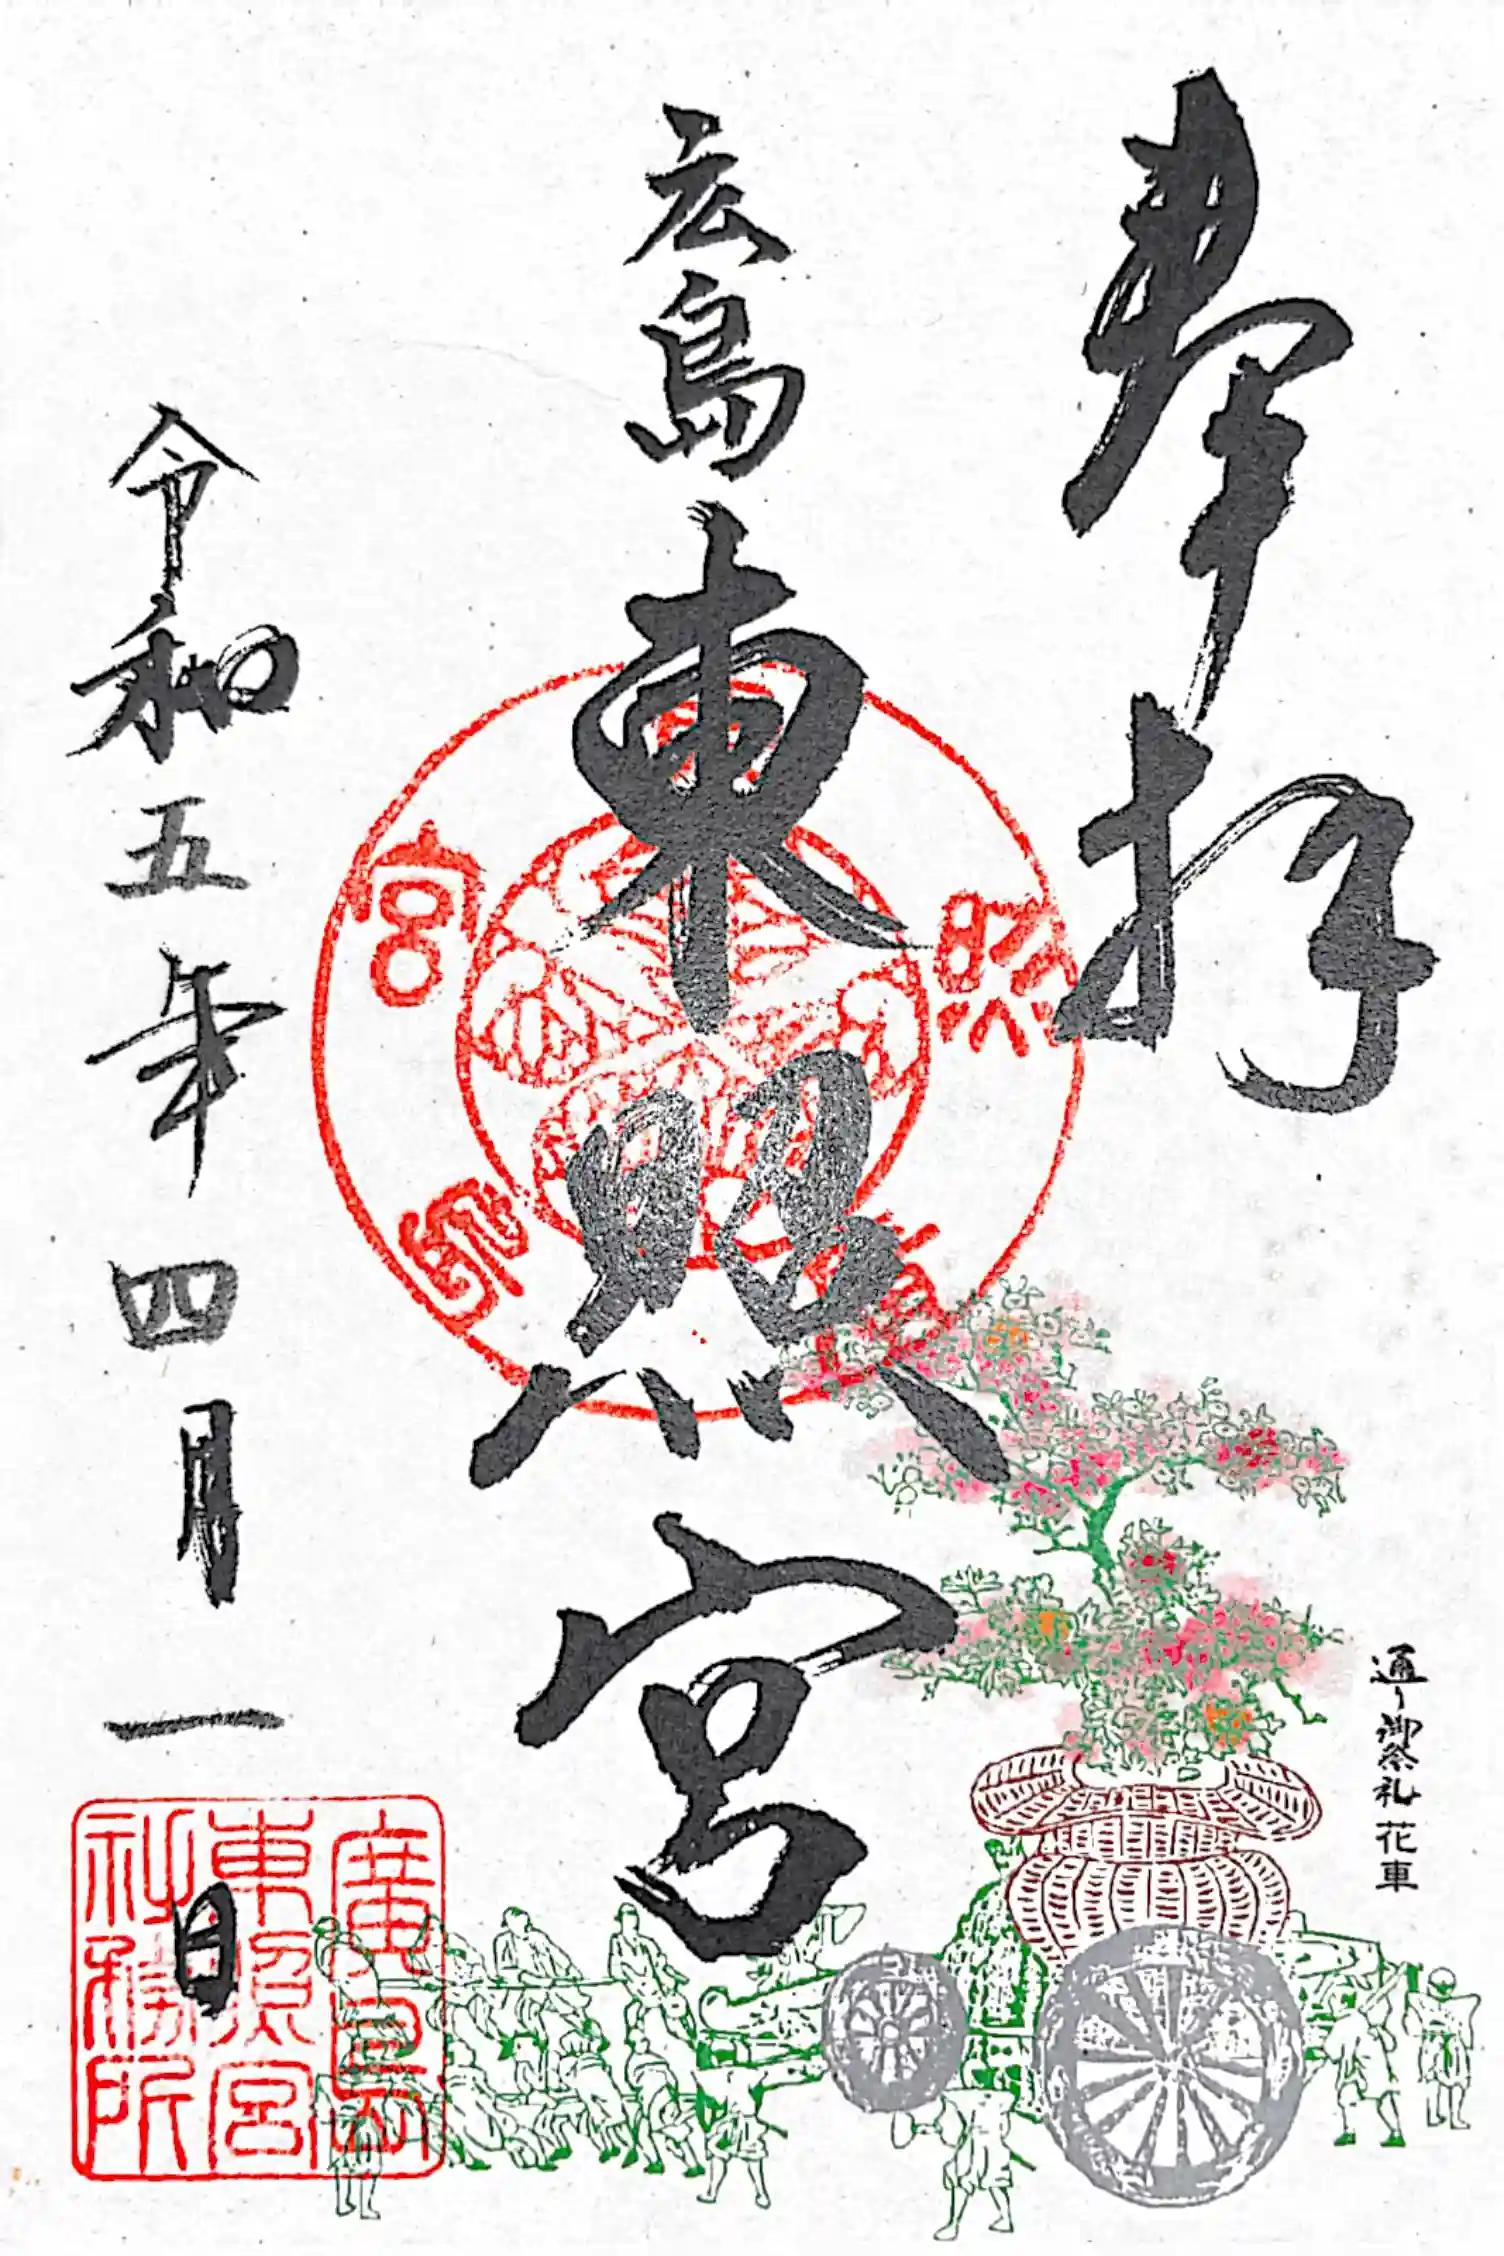 奉拝
広島東照宮
令和五年四月一日
通り御祭礼 花車
廣島
東照宮
社務所